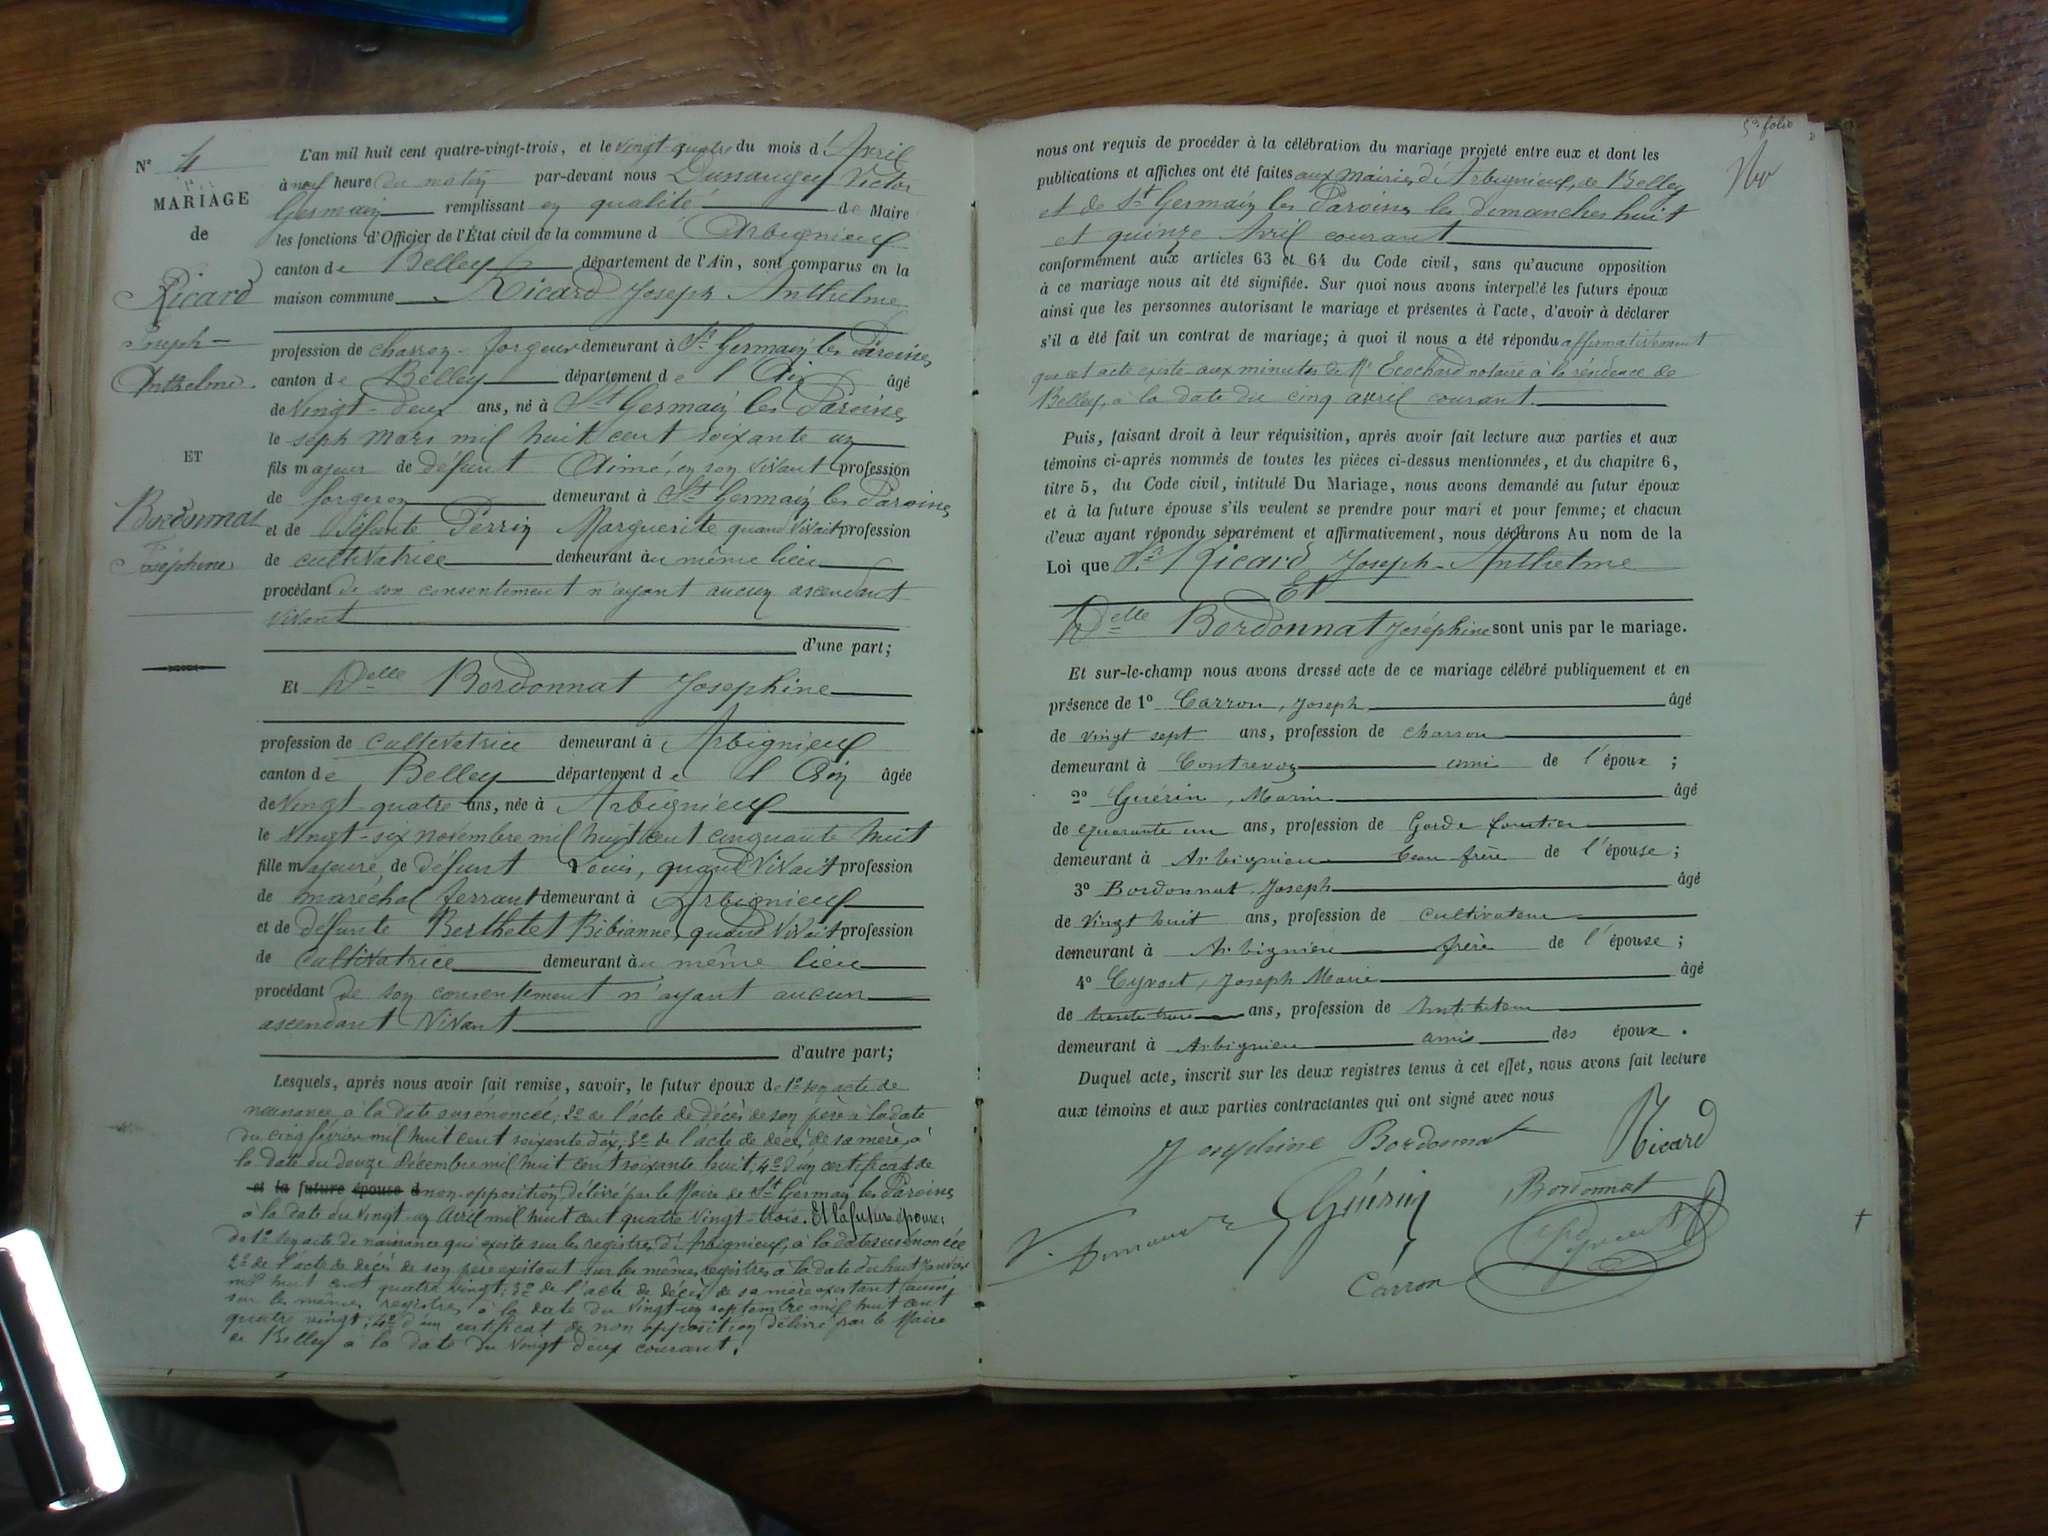 N° 4
MARIAGE
de
Ricard
Joseph-
Anthelme.
ET
Bordonnat
Joséphine
L'an mil huit cent quatre-vingt-trois, et le vingt-quatre du mois d'Avril
à neuf heure du matin par-devant nous Victor
Germain remplissant en qualité de Maire
les fonctions d'Officier de l'État civil de la commune d' Arbignieu
canton de Belley département de l'Ain, sont comparus en la
maison commune Ricard Joseph Anthelme
profession de charron-forgeur demeurant à St Germain les Paroisses
canton de Belley département de l'Ain âgé
de vingt-deux ans, né à St Germain les Paroisses
le sept mars mil huit cent soixante un
fils majeur de défunt Aimé, en son vivant profession
de forgeron demeurant à St Germain les Paroisses
et de défunte Perrin Marguerite quand vivait profession
de cultivatrice demeurant au même lieu
procédant de son consentement n'ayant aucun ascendant
vivant
d'une part;
Et Delle Bordonnat Josephine
profession de cultivatrice demeurant à Arbignieu
canton de Belley département de l'Ain âgée
de vingt-quatre ans, née à Arbignieu
le vingt-six novembre mil huit cent cinquante huit
fille majeure de défunt Louis, quand vivait profession
de maréchal ferrant demeurant à Arbignieu
et de défunte Berthelet Bibianne, quand vivait profession
de cultivatrice demeurant au même lieu
procédant de son consentement n'ayant aucun
ascendant vivant
d'autre part;
Lesquels, après nous avoir fait remise, savoir, le futur époux de 1° son acte de
naissance à la date susénoncée; 2° de l'acte de décès de son père à la date
du cinq février mil huit cent soixante dix; 3° de l'acte de décès de sa mère, à
la date du douze Décembre mil huit cent soixante huit, 4° d'un certificat de
et la future épouse d non-opposition délivré par le Maire de St Germain les Paroisses
à la date du vingt-un Avril mil huit cent quatre vingt-trois. Et la future épouse:
de 1° son acte de naissance qui existe sur les registres d'Arbignieu, à la date susénoncée
2° de l'acte de décès de son père existant sur les mêmes registres à la date du huit janvier
mil huit cent quatre vingt; 3° de l'acte de décès de sa mère existant aussi
sur les mêmes registres à la date du vingt-un septembre mil huit cent
quatre vingt; 4° d'un certificat de non opposition délivré par le Maire
de Belley à la date du vingt deux courant.
folio
nous ont requis de procéder à la célébration du mariage projeté entre eux et dont les
publications et affiches ont été faites aux mairies d'Arbignieu, de Belley
et de St Germain les Paroisses les dimanches huit
et quinze Avril courant
conformément aux articles 63 et 64 du Code civil, sans qu'aucune opposition
à ce mariage nous ait été signifiée. Sur quoi nous avons interpellé les futurs époux
ainsi que les personnes autorisant le mariage et présentes à l'acte, d'avoir à déclarer
s'il a été fait un contrat de mariage; à quoi il nous a été répondu affirmativement
que cet acte existe aux minutes de Me Ecochard notaire à la résidence de
Belley, à la date du cinq avril courant.
Puis, faisant droit à leur réquisition, après avoir fait lecture aux parties et aux
témoins ci-après nommés de toutes les pièces ci-dessus mentionnées, et du chapitre 6,
titre 5, du Code civil, intitulé Du Mariage, nous avons demandé au futur époux
et à la future épouse s'ils veulent se prendre pour mari et pour femme; et chacun
d'eux ayant répondu séparément et affirmativement, nous déclarons Au nom de la
Loi que Sr Ricard Joseph-Anthelme
Et
Delle Bordonnat Joséphine sont unis par le mariage.
Et sur-le-champ nous avons dressé acte de ce mariage célébré publiquement et en
présence de 1° Carron, Joseph âgé
de vingt sept ans, profession de charron
demeurant à Contrevoz ami de l'époux ;
2° Guérin, Marin âgé
de quarante un ans, profession de Garde forestier
demeurant à Arbignieu beau-frère de l'épouse ;
3° Bordonnat Joseph âgé
de vingt huit ans, profession de cultivateur
demeurant à Arbignieu frère de l'épouse ;
4° Cyvoct, Joseph Marie âgé
de trente trois ans, profession de Instituteur
demeurant à Arbignieu amis des époux.
Duquel acte, inscrit sur les deux registres tenus à cet effet, nous avons fait lecture
aux témoins et aux parties contractantes qui ont signé avec nous
Josephine Bordonnat Ricard
Guérin Bordonnat
Carron